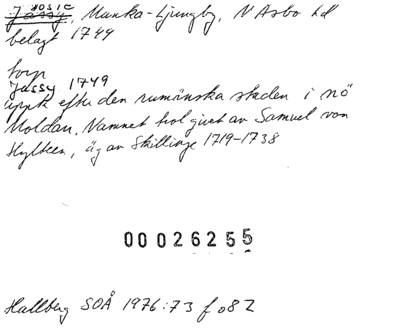 JOSIE
Jassy, Munka-Ljungby, N Åsbo hd
belagt 1749
torp
Jassy 1749
uppk efter den rumänska staden i nö
Moldau. Namnet trol givet av Samuel von
Hylteen, äg av Skillinge 1719-1738
00026255
Hallberg SOÅ 1976:73 f o 82